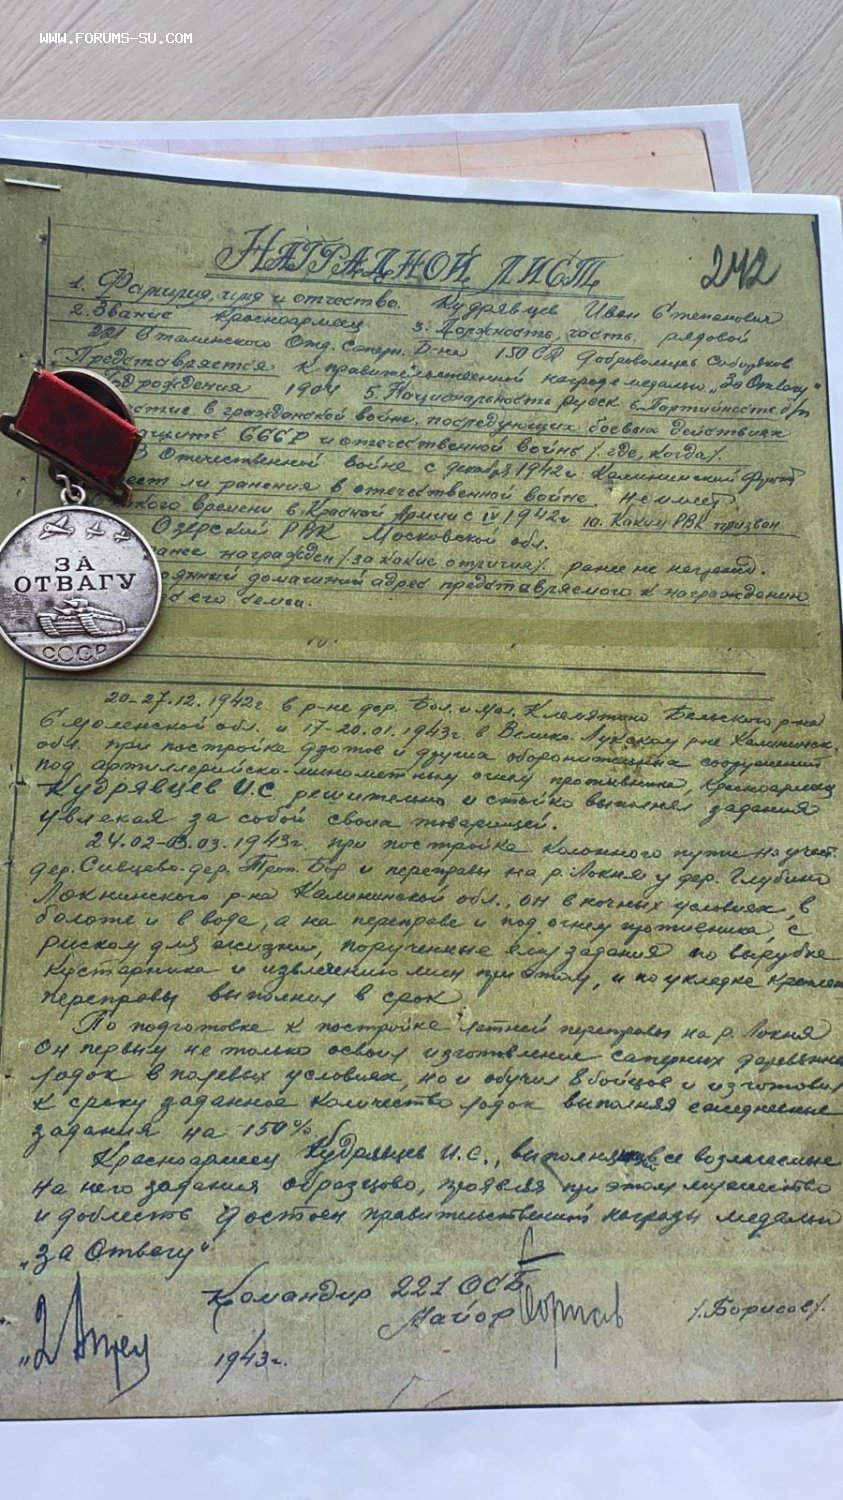 WWW.FORUMS-SU.COM
НАГРАДНОЙ ЛИСТ 242
1. Фамилия, имя и отчество. Кудрявцев Иван Степанович
2. Звание Красноармеец 3. Должность, часть. рядовой
221 Сталинского Отд. Саперн. Б-на 150 СД Добровольцев Сибиряков
Представляется к правительственной награде медалью „За Отвагу"
рождения 1904 5. Национальность русск 6. Партийность б/п
в гражданской войне, последующих боевых действиях
защите СССР и отечественной войне /где, когда/.
В Отечественной войне с декабря 1942 г. Калининский фронт
ли ранения в отечественной войне не имеет
времени в Красной Армии с IV 1942 г 10. Каким РВК призван
Озерский РВК Московской обл.
ранее награжден /за какие отличия/. ранее не награжд.
домашний адрес представляемого к награждению
его семьи.
ЗА
ОТВАГУ
СССР
20-27.12.1942г. в р-не дер. Бол. и Мал. Клемятино Бельского р-на
Смоленской обл. и 17-20.01.1943г. в Велико-Лукском р-не Калининск.
обл. при постройке дзотов и других оборонительных сооружений
под артиллерийско-минометным огнем противника, красноармеец
Кудрявцев И.С решительно и стойко выполнял задания
увлекая за собой своих товарищей.
24.02-03.03.1943г. при постройке колонного пути на участ.
дер. Сивцево-дер. Бор и переправы на р. Локня у дер. Глубино
Локнинского р-на Калининской обл., он в ночных условиях, в
болоте и в воде, а на переправе и под огнем противника, с
риском для жизни, порученные ему задания по вырубке
кустарника и извлечению мин при этом, и по укладке
переправы выполнил в срок.
По подготовке к постройке летней переправы на р. Локня
он первым не только освоил изготовление саперных деревянных
лодок в полевых условиях, но и обучил 8 бойцов и изготовил
к сроку заданное количество лодок выполняя ежедневные
задания на 150%
Красноармеец Кудрявцев И.С., выполняя все возлагаемые
на него задания образцово, проявляя при этом мужество
и доблесть достоен правительственной награды медалью
„За Отвагу"
Командир 221 ОСБ
Майор /Борисов/.
„2 Апрел
1943г.